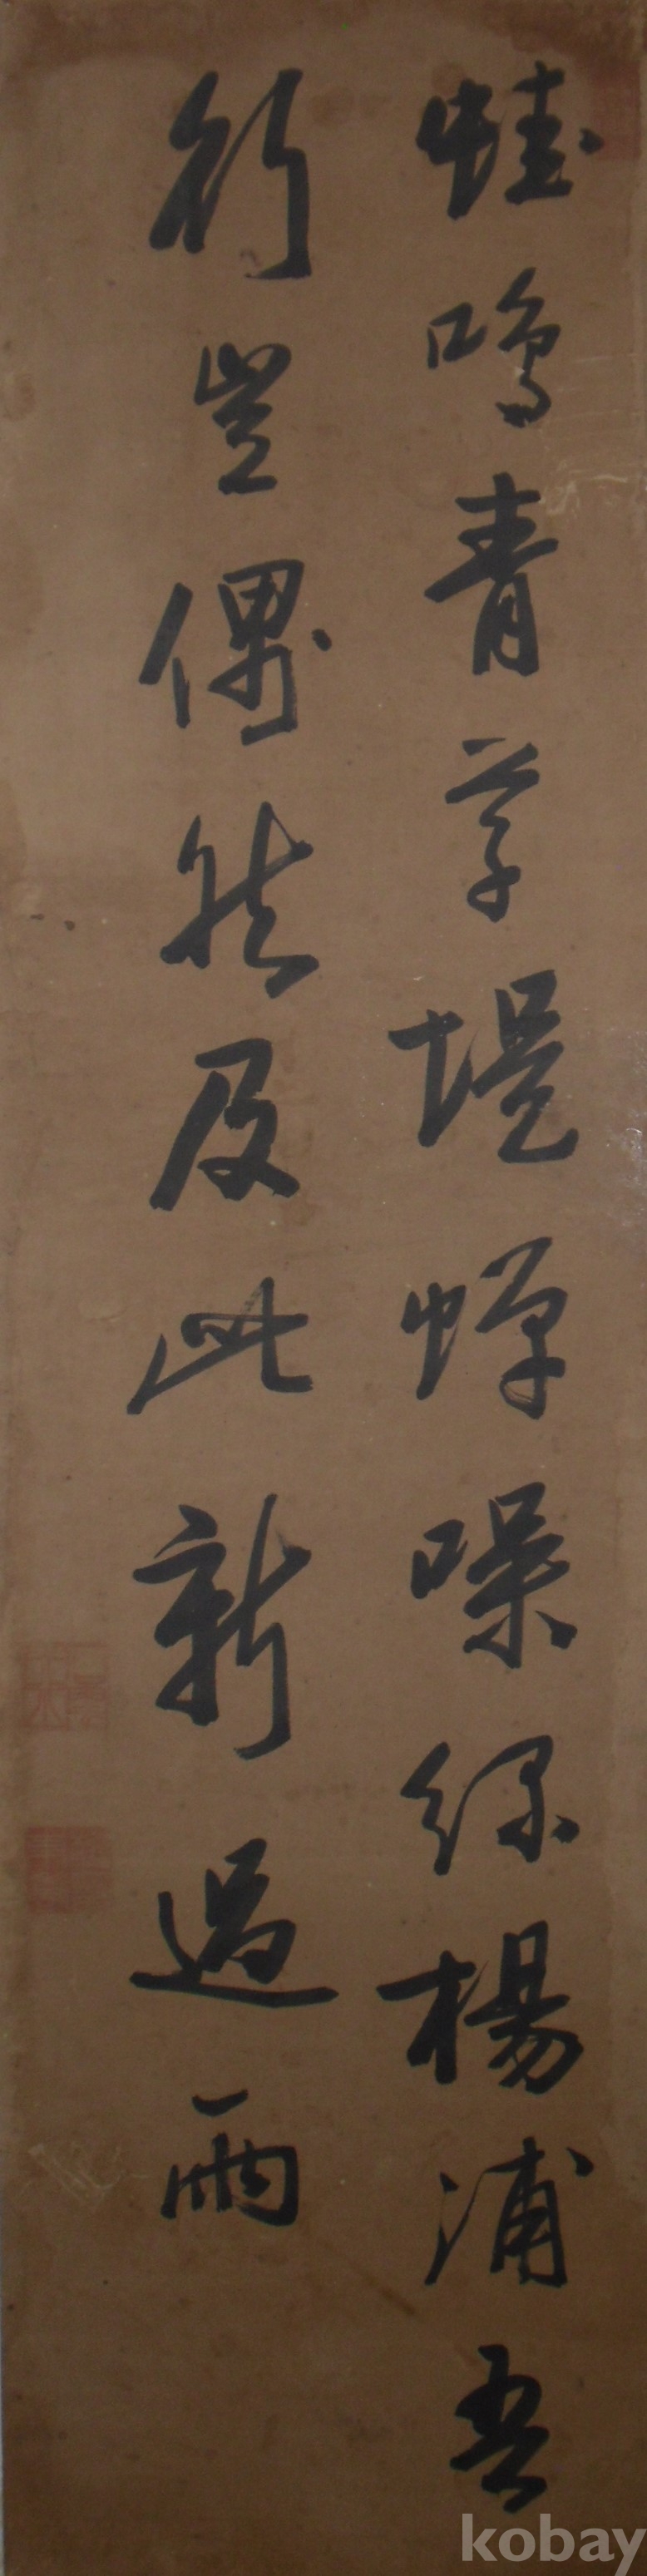 蛙鳴青草堤蟬噪綠楊浦吾
行豈偶然及此新過雨
kobay